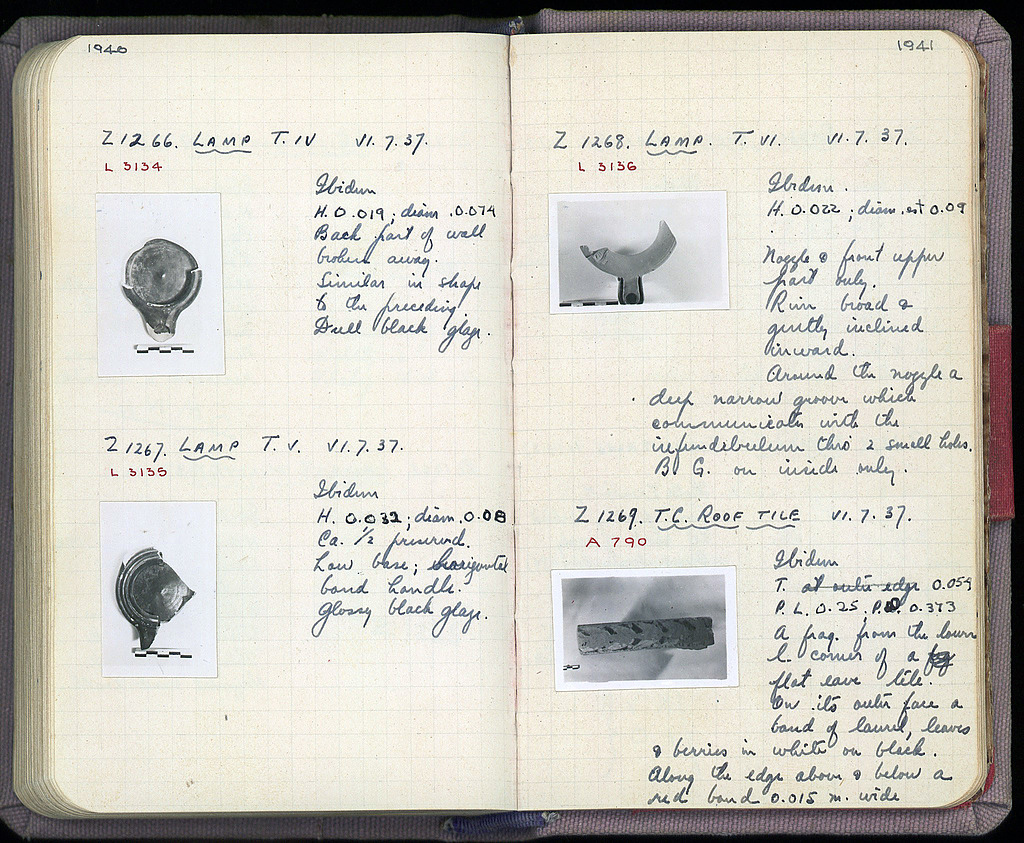 1940
Z 1266. LAMP T. IV VI. 7. 37.
L 3134
Ibidum
H. 0.019; diam. 0.074
Back part of wall
broken away.
Similar in shape
to the preceding.
Dull black glaze.
Z 1267. LAMP T. V. VI. 7. 37.
L 3135
Ibidum
H. 0.032; diam. 0.08
Ca. 1/2 preserved.
Low base; horizontal
band handle.
Glossy black glaze.
1941
Z 1268. LAMP. T. VI. VI. 7. 37.
L 3136
Ibidum.
H. 0.022; diam. est 0.09
Nozzle & front upper
part only.
Rim broad &
gently inclined
inward.
Around the nozzle a
deep narrow groove which
communicates with the
infundibulum thro' 2 small holes.
B. G. on inside only.
Z 1269. T.C. ROOF TILE VI. 7. 37.
A 790
Ibidum
T. at outer edge 0.054
P. L. 0.25, P. 0.373
A frag. from the lower
l. corner of a
flat eave tile.
On its outer face a
band of laurel, leaves
& berries in white on black.
Along the edge above & below a
red band 0.015 m. wide